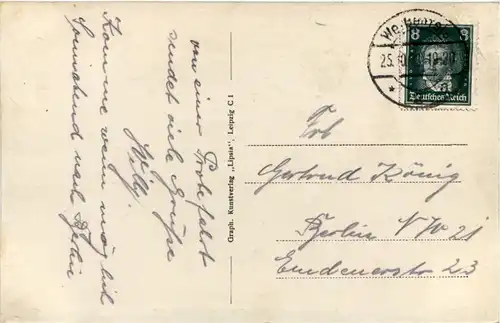 von einer Probefahrt
sendet viele Grüße
Willy
Komme wenn möglich
Sonnabend nach Berlin
Graph. Kunstverlag „Lipsia", Leipzig C 1
8 8
Deutsches Reich
25.10.
Frl
Gertrud König
Berlin NW 21
Emdenerstr 23